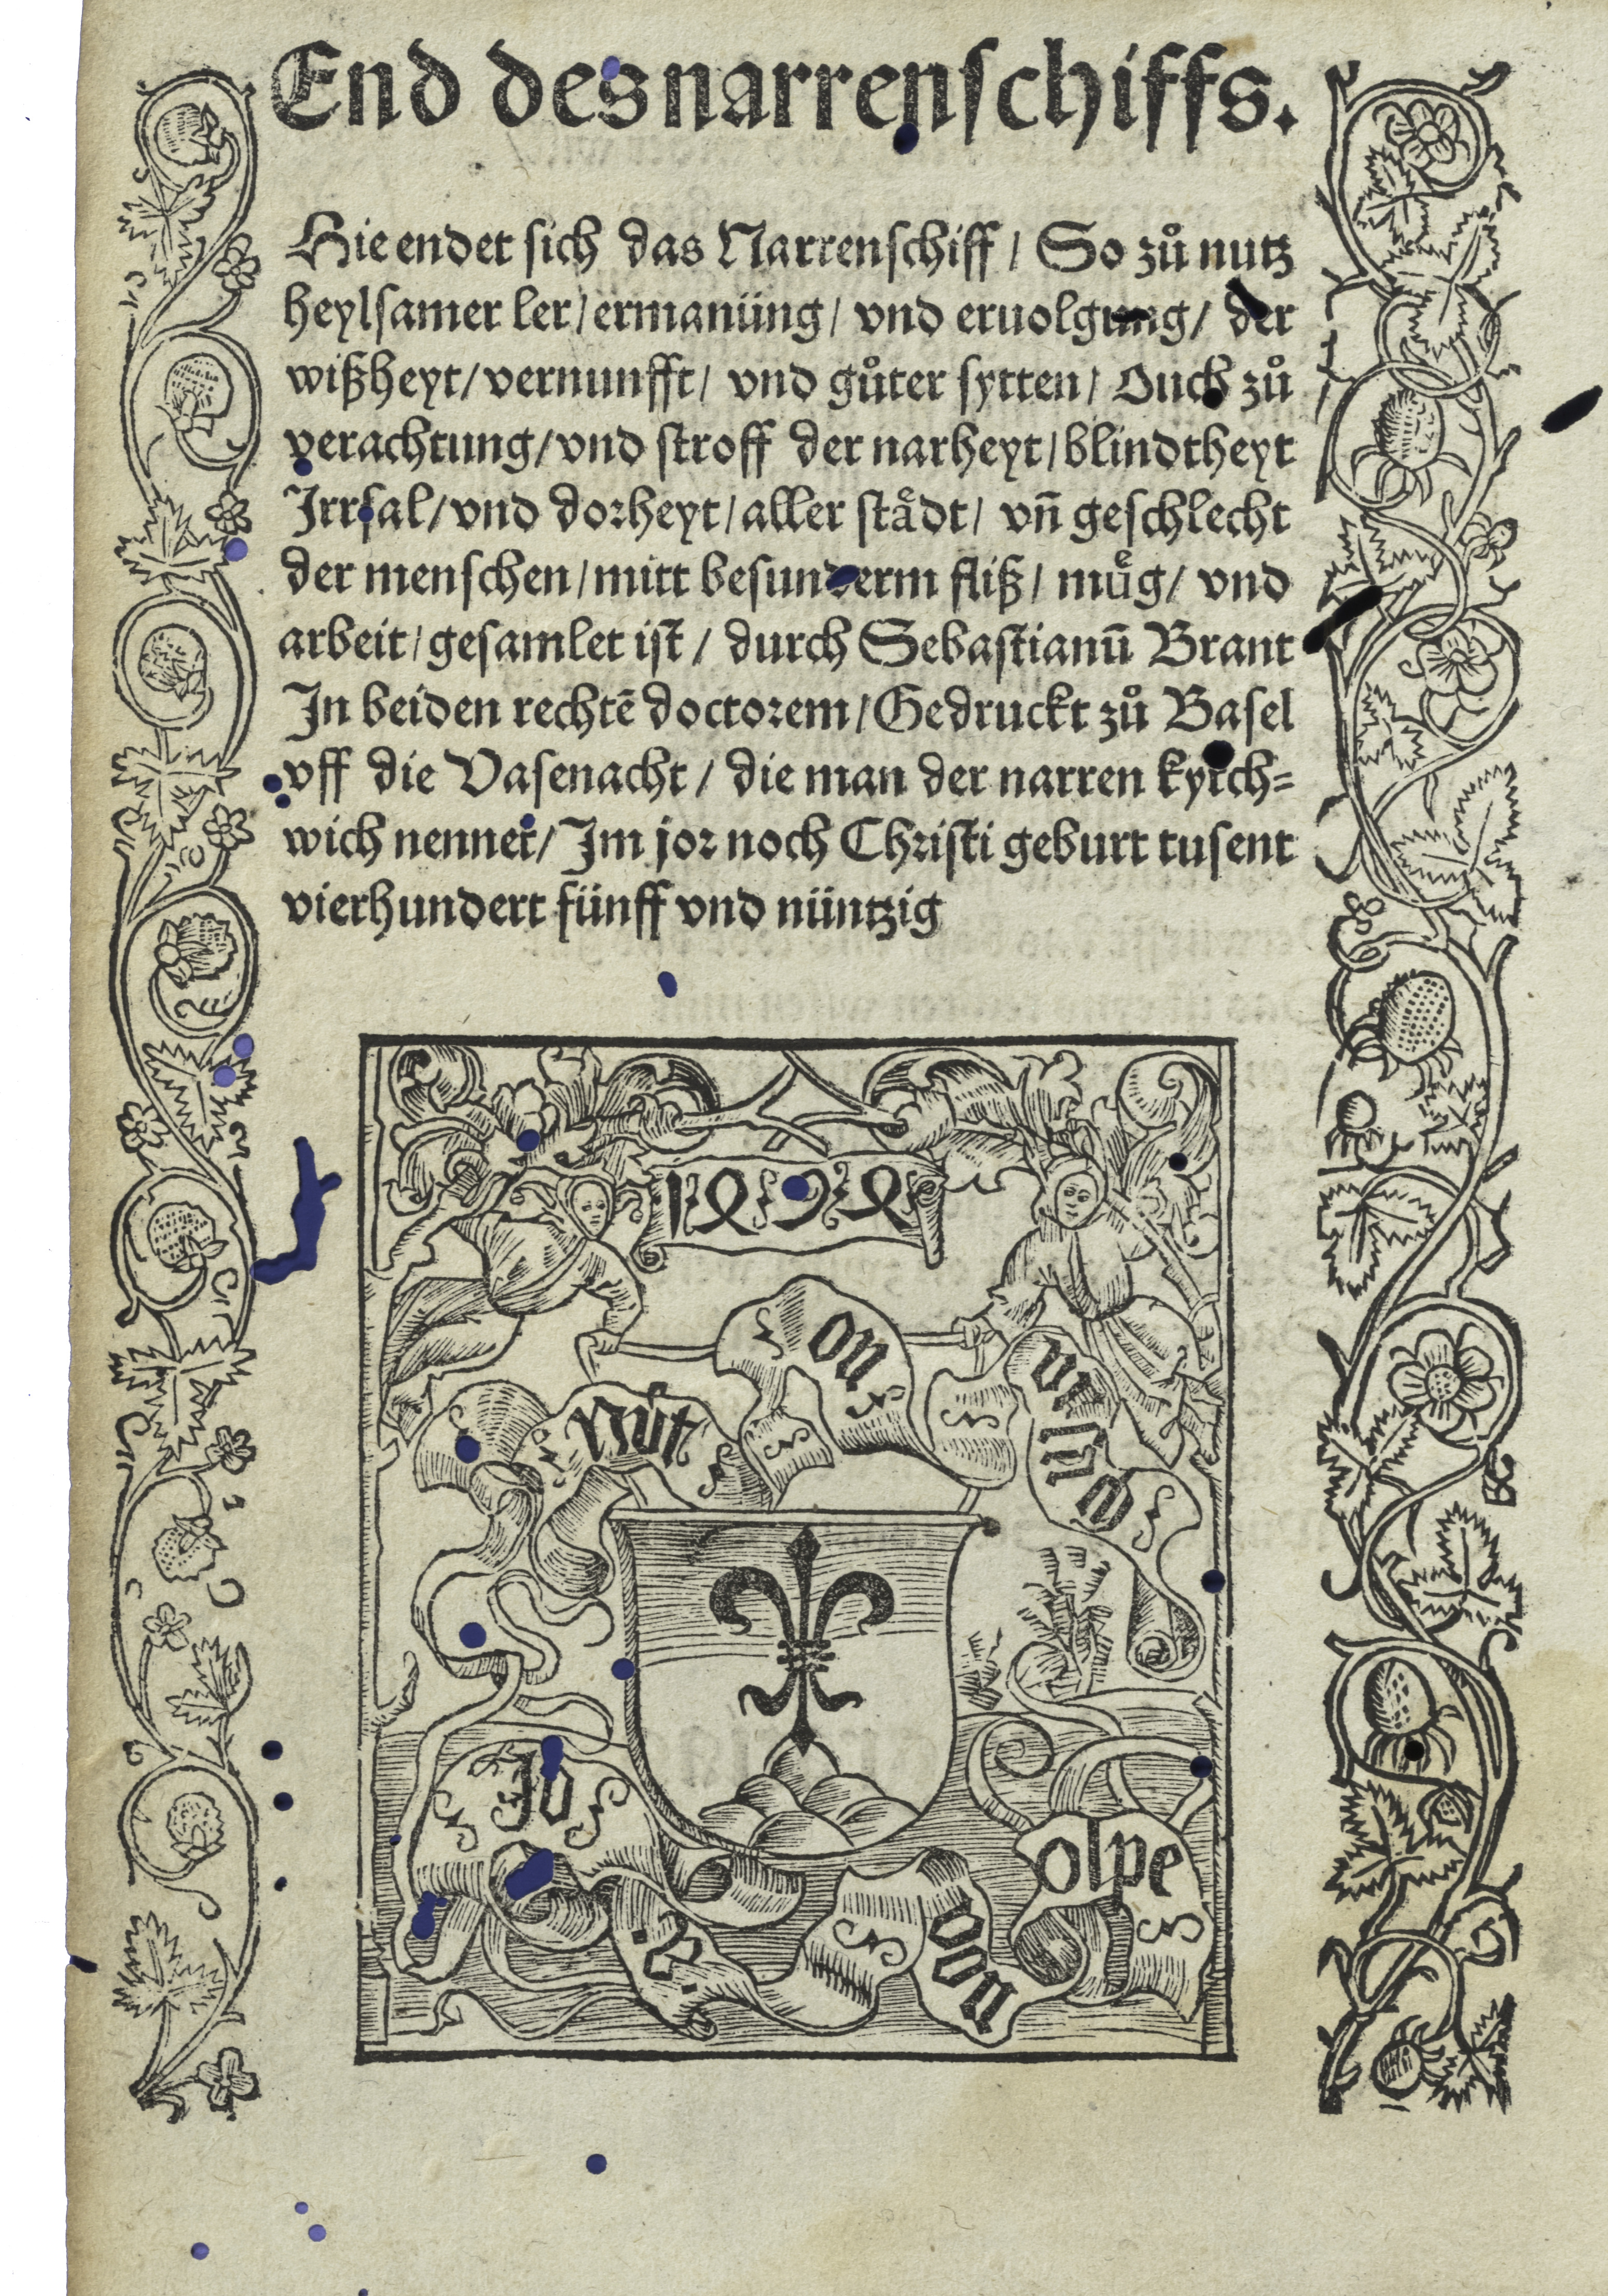 End des narrenschiffs.
Hie endet sich das Narrenschiff / So zuͦ nutz
heylsamer ler / ermanüng / vnd eruolgung / der
wißheyt / vernunfft / vnd guͦter sytten / Ouch zuͦ
verachtung / vnd stroff der narheyt / blindtheyt
Irrsal / vnd dorheyt / aller staͤdt / vn̄ geschlecht
der menschen / mitt besunderm fliß / muͤg / vnd
arbeit / gesamlet ist / durch Sebastianū Brant
In beiden rechtē doctorem / Gedruckt zuͦ Basel
vff die Vasenacht / die man der narren kyrch=
wich nennet / Im jor noch Christi geburt tusent
vierhundert fünff vnd nüntzig
1494
nüt
on
vrsach
Jo
.B.
von
olpe